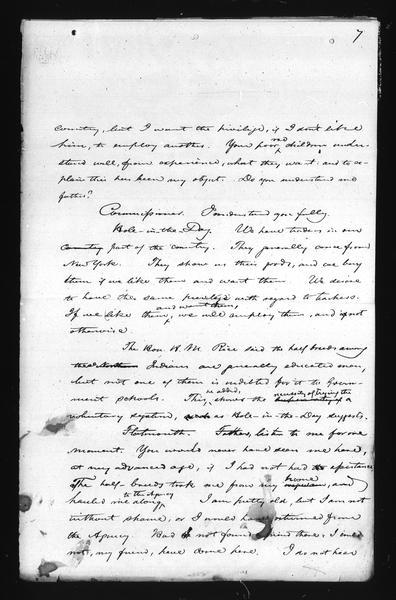 7
country, but I want the privilege, if I dont like
him, to employ another. Your poor red children under-
stand well, from experience, what they want: and to ex-
plain this has been my object. Do you understand me
father?
Commissioner. I understand you fully.
Hole-in-the-Day. We have traders in our
country part of the country. They generally come from
New York. They show us their goods, and we buy
them if we like them and want them. We desire
to have the same privilege with regard to teachers.
If we like them, and want them, we will employ them, and if not
otherwise.
The Hon. H. M. Rice said the half breeds among
the Northern Indians are generally educated men,
but not one of them is indebted for it to Govern-
ment schools. This, he added, shows the necessity of trying the
voluntary system, as Hole-in-the-Day suggests.
Flatmouth. Father, listen to me for one
moment. You would never have seen me here,
at my advanced age, if I had not had assistance.
The half-breeds took me from my home, and
hauled me along to the Agency. I am pretty old, but I am not
without shame, or I would have returned from
the Agency. Had I not found friends there, I could
not, my friend, have come here. I do not hear